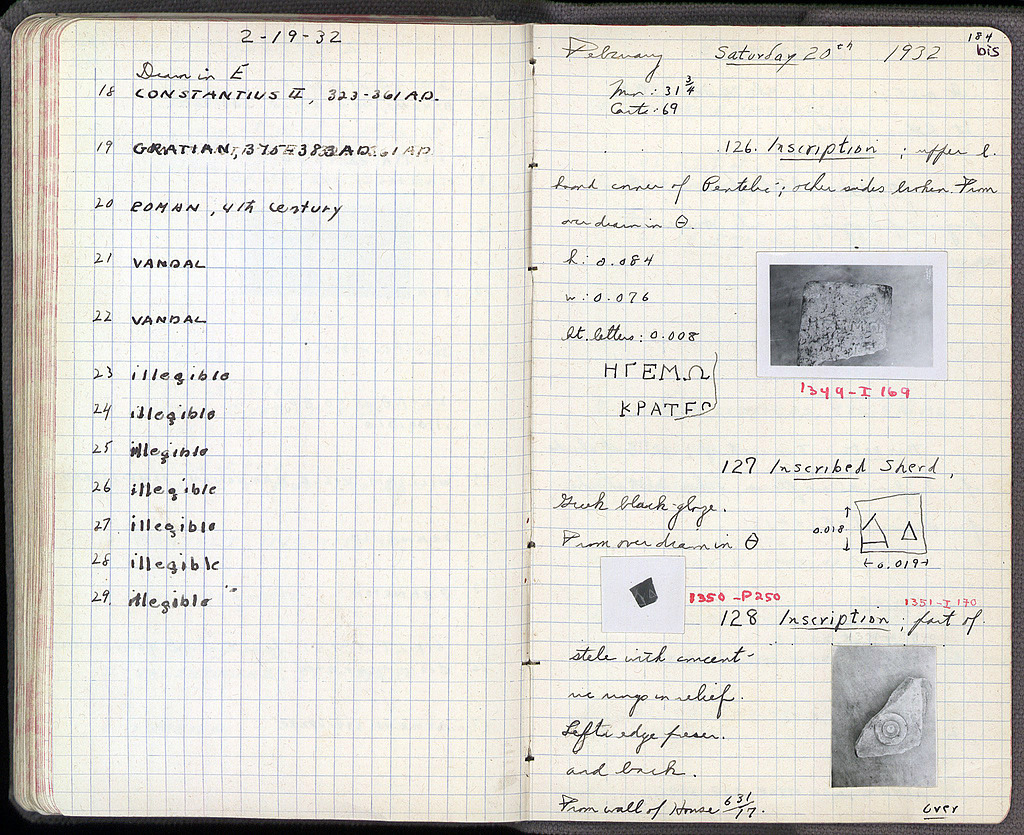 2-19-32
Drain in E
18 CONSTANTIUS II, 323-361 A.D.
19 GRATIAN, 375-383 A.D.
20 ROMAN, 4th century
21 VANDAL
22 VANDAL
23 illegible
24 illegible
25 illegible
26 illegible
27 illegible
28 illegible
29. illegible
184
bis
February Saturday 20th 1932
Men: 31 3/4
Carts: 69
126. Inscription ; upper l.
hand corner of Pentelic ; other sides broken. From
over drain in Θ.
h: 0.084
w: 0.076
ht. letters: 0.008
ΗΓΕΜΩ
ΚΡΑΤΕ
1349-I 169
127 Inscribed Sherd,
Greek black-glaze.
From over drain in Θ
0.018
Δ Δ
0.019
1350-P250
1351-I 170
128 Inscription ; part of
stele with concent-
ric rings in relief.
Left edge preser.
and back.
From wall of House 631/17.
over